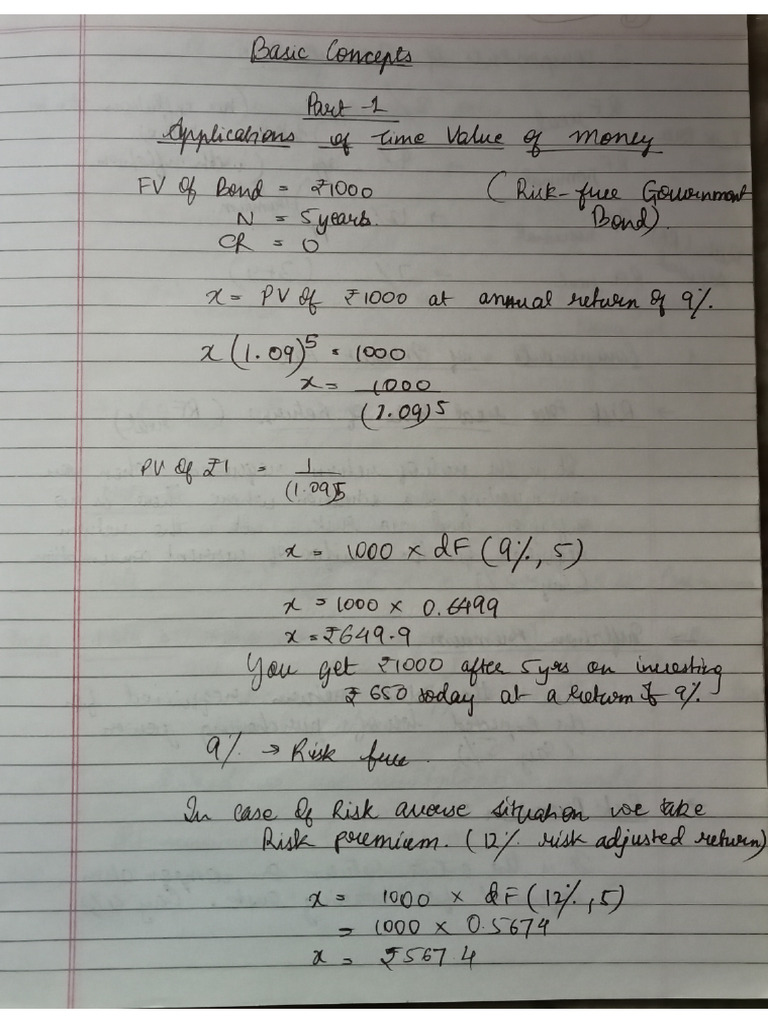 Basic Concepts
Part - 1
Applications of Time Value of Money
FV of Bond = ₹1000 (Risk-free Government
N = 5 years. Bond).
CR = 0
x = PV of ₹1000 at annual return of 9%.
x(1.09)^5 = 1000
x = 1000
(1.09)^5
PV of ₹1 = 1
(1.09)^5
x = 1000 × dF (9%, 5)
x = 1000 × 0.6499
x = ₹649.9
You get ₹1000 after 5yrs on investing
₹650 today at a return of 9%.
9% → Risk free.
In case of Risk averse situation we take
Risk premium. (12% risk adjusted return)
x = 1000 × dF (12%, 5)
= 1000 × 0.5674
x = ₹567.4